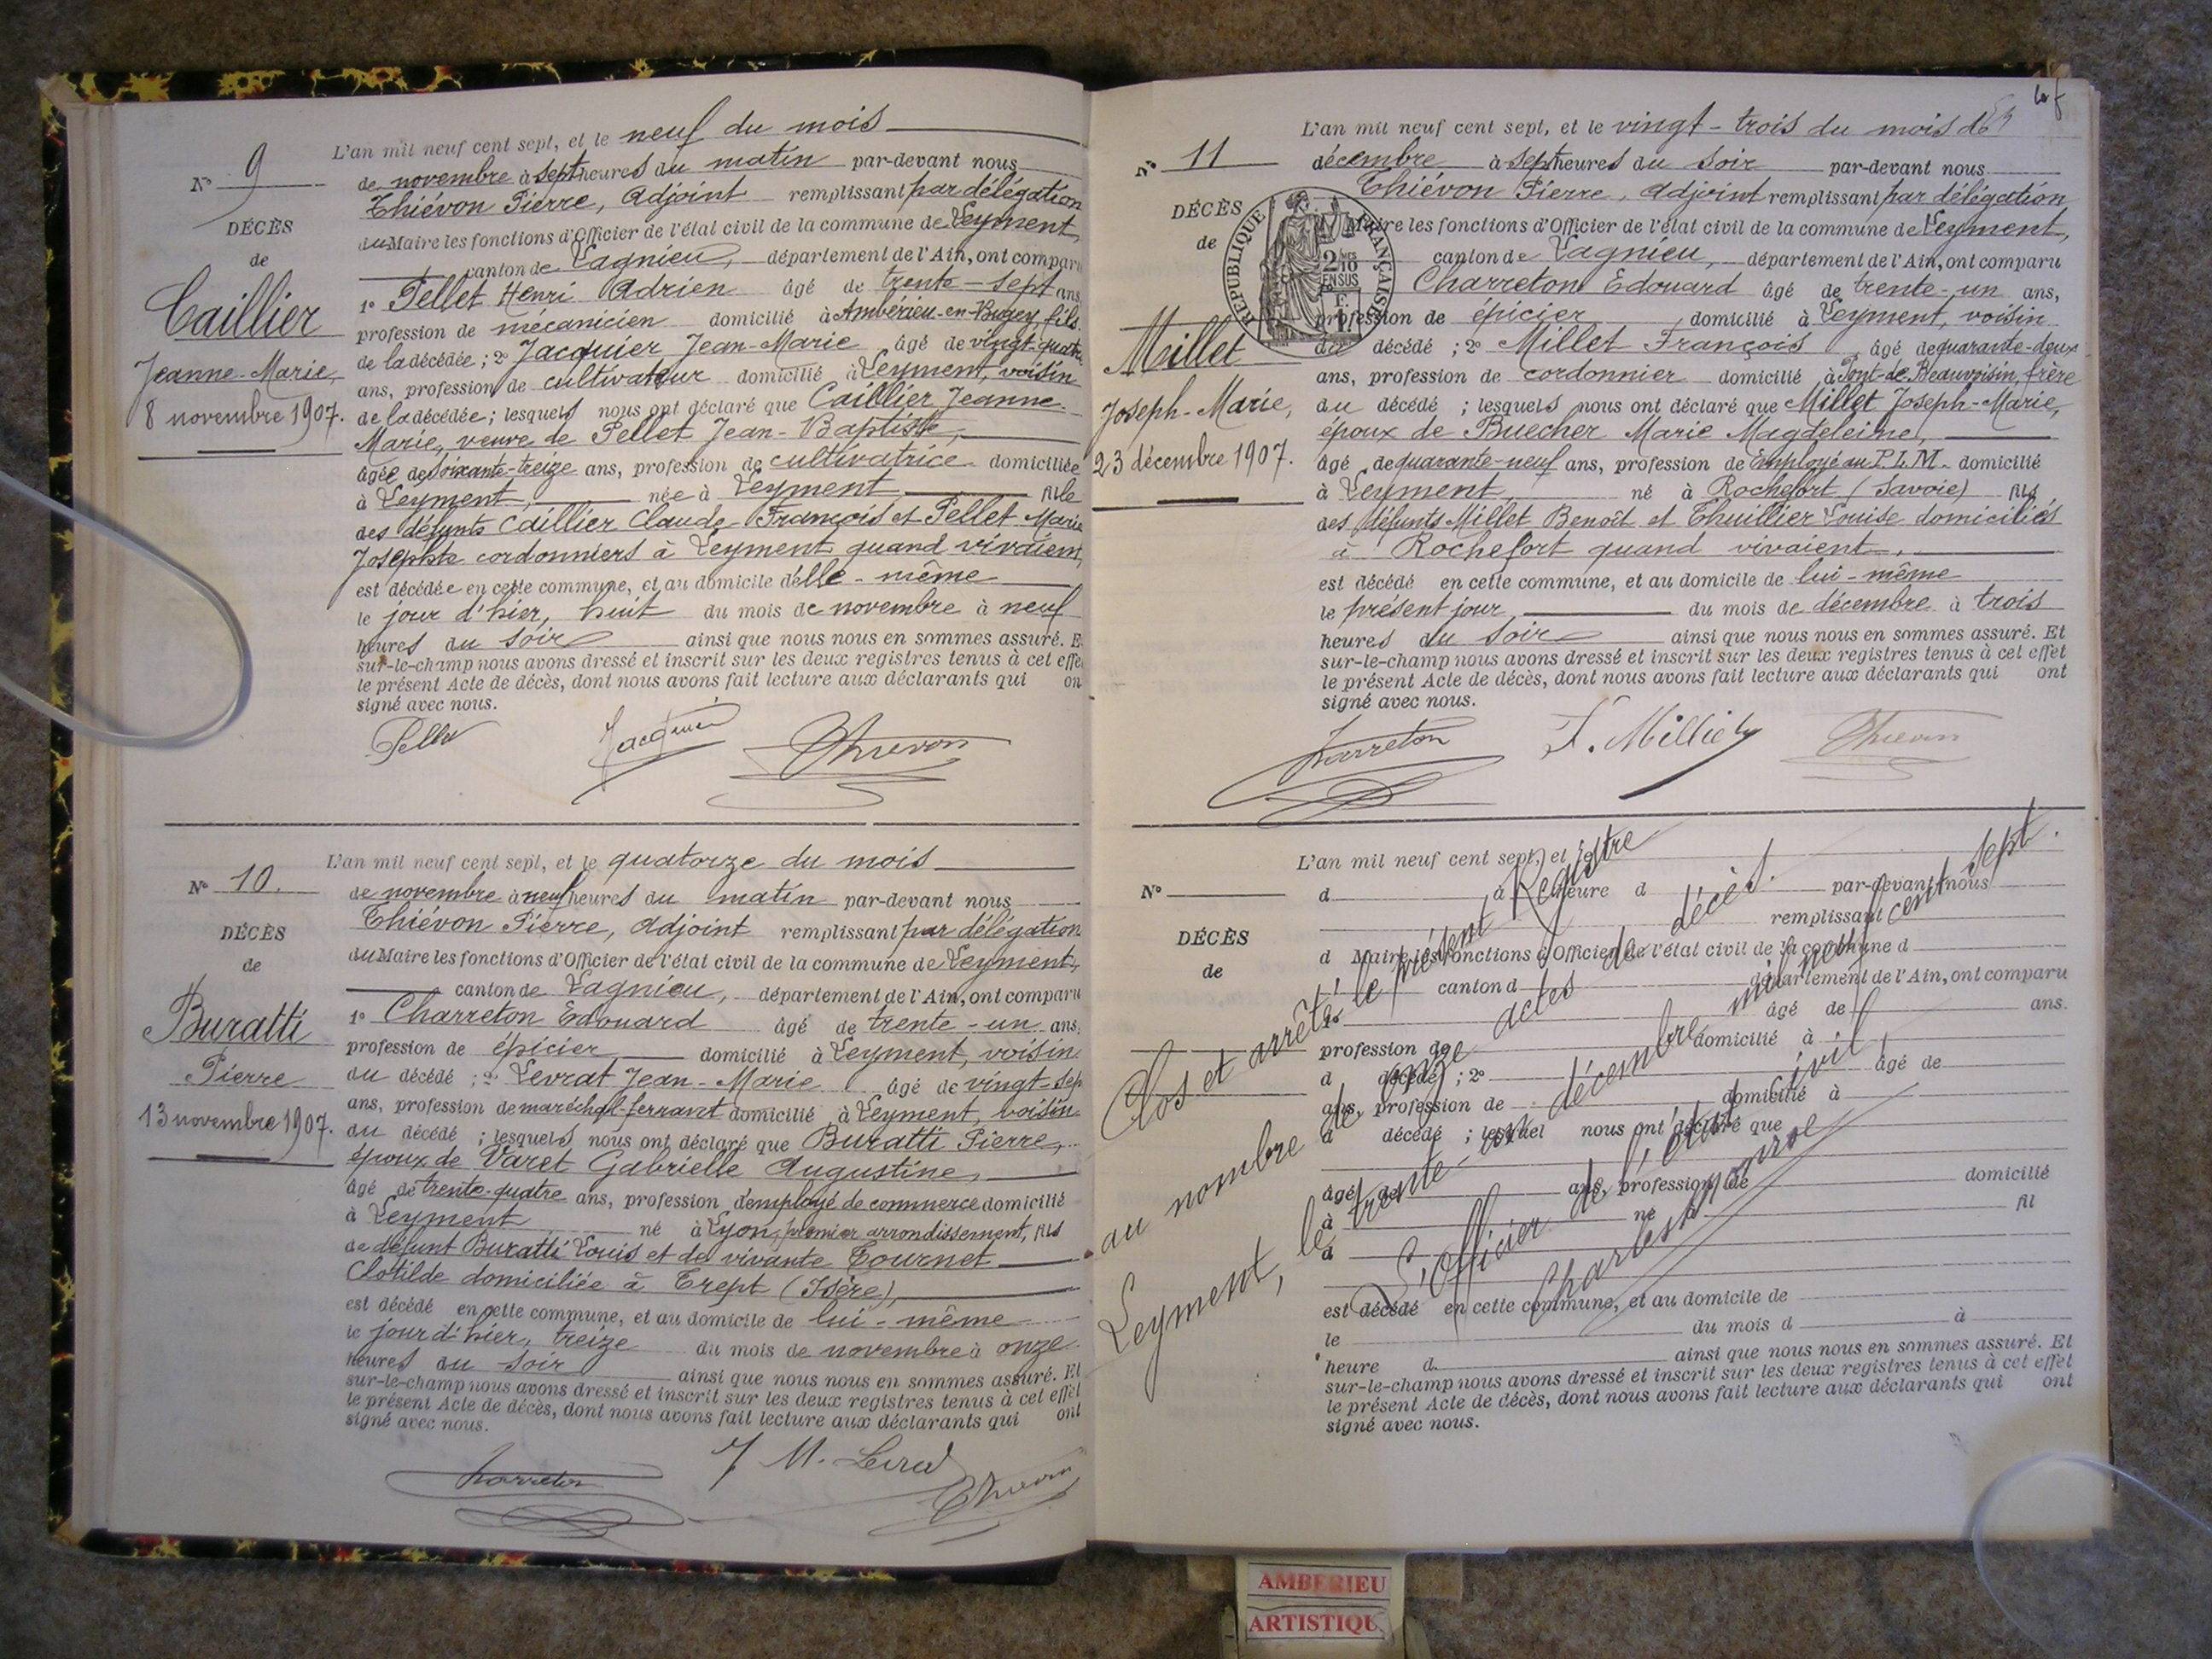 N° 9
DÉCÈS
de
Caillier
Jeanne-Marie,
8 novembre 1907.
L'an mil neuf cent sept, et le neuf du mois
de novembre à sept heures du matin par-devant nous
Thiévon Pierre, Adjoint remplissant par délégation
du Maire les fonctions d'Officier de l'état civil de la commune de Leyment,
canton de Lagnieu, département de l'Ain, ont comparu
1° Pellet Henri Adrien âgé de trente-sept ans,
profession de mécanicien domicilié à Ambérieu-en-Bugey, fils
de la décédée ; 2° Jacquier Jean-Marie âgé de vingt-quatre
ans, profession de cultivateur domicilié à Leyment, voisin
de la décédée ; lesquels nous ont déclaré que Caillier Jeanne-
Marie, veuve de Pellet Jean-Baptiste,
âgée de soixante-treize ans, profession de cultivatrice domiciliée
à Leyment, née à Leyment, fille
des défunts Caillier Claude-François et Pellet Marie
Josephte cordonniers à Leyment quand vivaient,
est décédée en cette commune, et au domicile d'elle-même
le jour d'hier, huit du mois de novembre à neuf
heures du soir ainsi que nous nous en sommes assuré. E
sur-le-champ nous avons dressé et inscrit sur les deux registres tenus à cet effe
le présent Acte de décès, dont nous avons fait lecture aux déclarants qui on
signé avec nous.
Pellet Jacquier Thievon
N° 10.
DÉCÈS
de
Buratti
Pierre
13 novembre 1907.
L'an mil neuf cent sept, et le quatorze du mois
de novembre à neuf heures du matin par-devant nous
Thiévon Pierre, Adjoint remplissant par délégation
du Maire les fonctions d'Officier de l'état civil de la commune de Leyment,
canton de Lagnieu, département de l'Ain, ont comparu
1° Charreton Edouard âgé de trente-un ans,
profession de épicier, domicilié à Leyment, voisin
du décédé ; 2° Levrat Jean-Marie âgé de vingt-sep
ans, profession de maréchal-ferrant domicilié à Leyment, voisin
du décédé ; lesquels nous ont déclaré que Buratti Pierre,
époux de Varet Gabrielle Augustine,
âgé de trente-quatre ans, profession d'employé de commerce domicilié
à Leyment né à Lyon, premier arrondissement, fils
de défunt Buratti Louis et de vivante Tournet
Clotilde domiciliée à Trept (Isère),
est décédé en cette commune, et au domicile de lui-même
le jour d'hier, treize du mois de novembre à onze
heures du soir ainsi que nous nous en sommes assuré. Et
sur-le-champ nous avons dressé et inscrit sur les deux registres tenus à cet effet
le présent Acte de décès, dont nous avons fait lecture aux déclarants qui ont
signé avec nous.
Charreton J M. Levrat Thievon
N° 11
DÉCÈS
de
Millet
Joseph-Marie,
23 décembre 1907.
RÉPUBLIQUE FRANÇAISE
2/10
EN SUS
L'an mil neuf cent sept, et le vingt-trois du mois de
décembre à sept heures du soir par-devant nous
Thiévon Pierre, Adjoint remplissant par délégation
du Maire les fonctions d'Officier de l'état civil de la commune de Leyment,
canton de Lagnieu, département de l'Ain, ont comparu
Charreton Edouard âgé de trente-un ans,
profession de épicier domicilié à Leyment, voisin
du décédé ; 2° Millet François âgé de quarante-deux
ans, profession de cordonnier domicilié à Pont-de-Beauvoisin, frère
du décédé ; lesquels nous ont déclaré que Millet Joseph-Marie,
époux de Buecher Marie Magdeleine,
âgé de quarante-neuf ans, profession de Employé au P.L.M. domicilié
à Leyment, né à Rochefort (Savoie) fils
des défunts Millet Benoît et Thuillier Louise domiciliés
à Rochefort quand vivaient,
est décédé en cette commune, et au domicile de lui-même
le présent jour, du mois de décembre à trois
heures du soir ainsi que nous nous en sommes assuré. Et
sur-le-champ nous avons dressé et inscrit sur les deux registres tenus à cet effet
le présent Acte de décès, dont nous avons fait lecture aux déclarants qui ont
signé avec nous.
Charreton F. Milliet Thievon
N°
DÉCÈS
de
L'an mil neuf cent sept, et le
d à heure d par-devant nous
remplissant
d Maire les fonctions d'Officier de l'état civil de la commune d
canton d département de l'Ain, ont comparu
1° âgé de ans,
profession de domicilié à
d décédé ; 2° âgé de
ans, profession de domicilié à
d décédé ; lequel nous ont déclaré que
âgé de ans, profession de domicilié
à né à fil
d
est décédé en cette commune, et au domicile de
le du mois d à
heure d ainsi que nous nous en sommes assuré. Et
sur-le-champ nous avons dressé et inscrit sur les deux registres tenus à cet effet
le présent Acte de décès, dont nous avons fait lecture aux déclarants qui ont
signé avec nous.
Clos et arrêté le présent Registre
au nombre de onze actes de décès.
Leyment, le trente-un décembre mil neuf cent sept.
L'Officier de l'état civil
AMBERIEU
ARTISTIQU